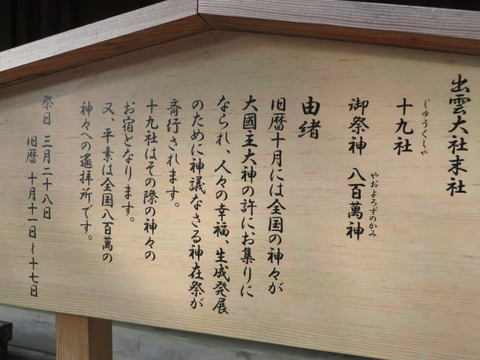 出雲大社末社
じゅうくしゃ
十九社
やおよろずのかみ
御祭神 八百萬神
由緒
旧暦十月には全国の神々が
大國主大神の許にお集りに
なられ、人々の幸福、生成発展
のために神議なさる神在祭が
斎行されます。
十九社はその際の神々の
お宿となります。
又、平素は全国八百萬の
神々への遥拝所です。
祭日 三月二十八日
旧暦 十月十一日~十七日